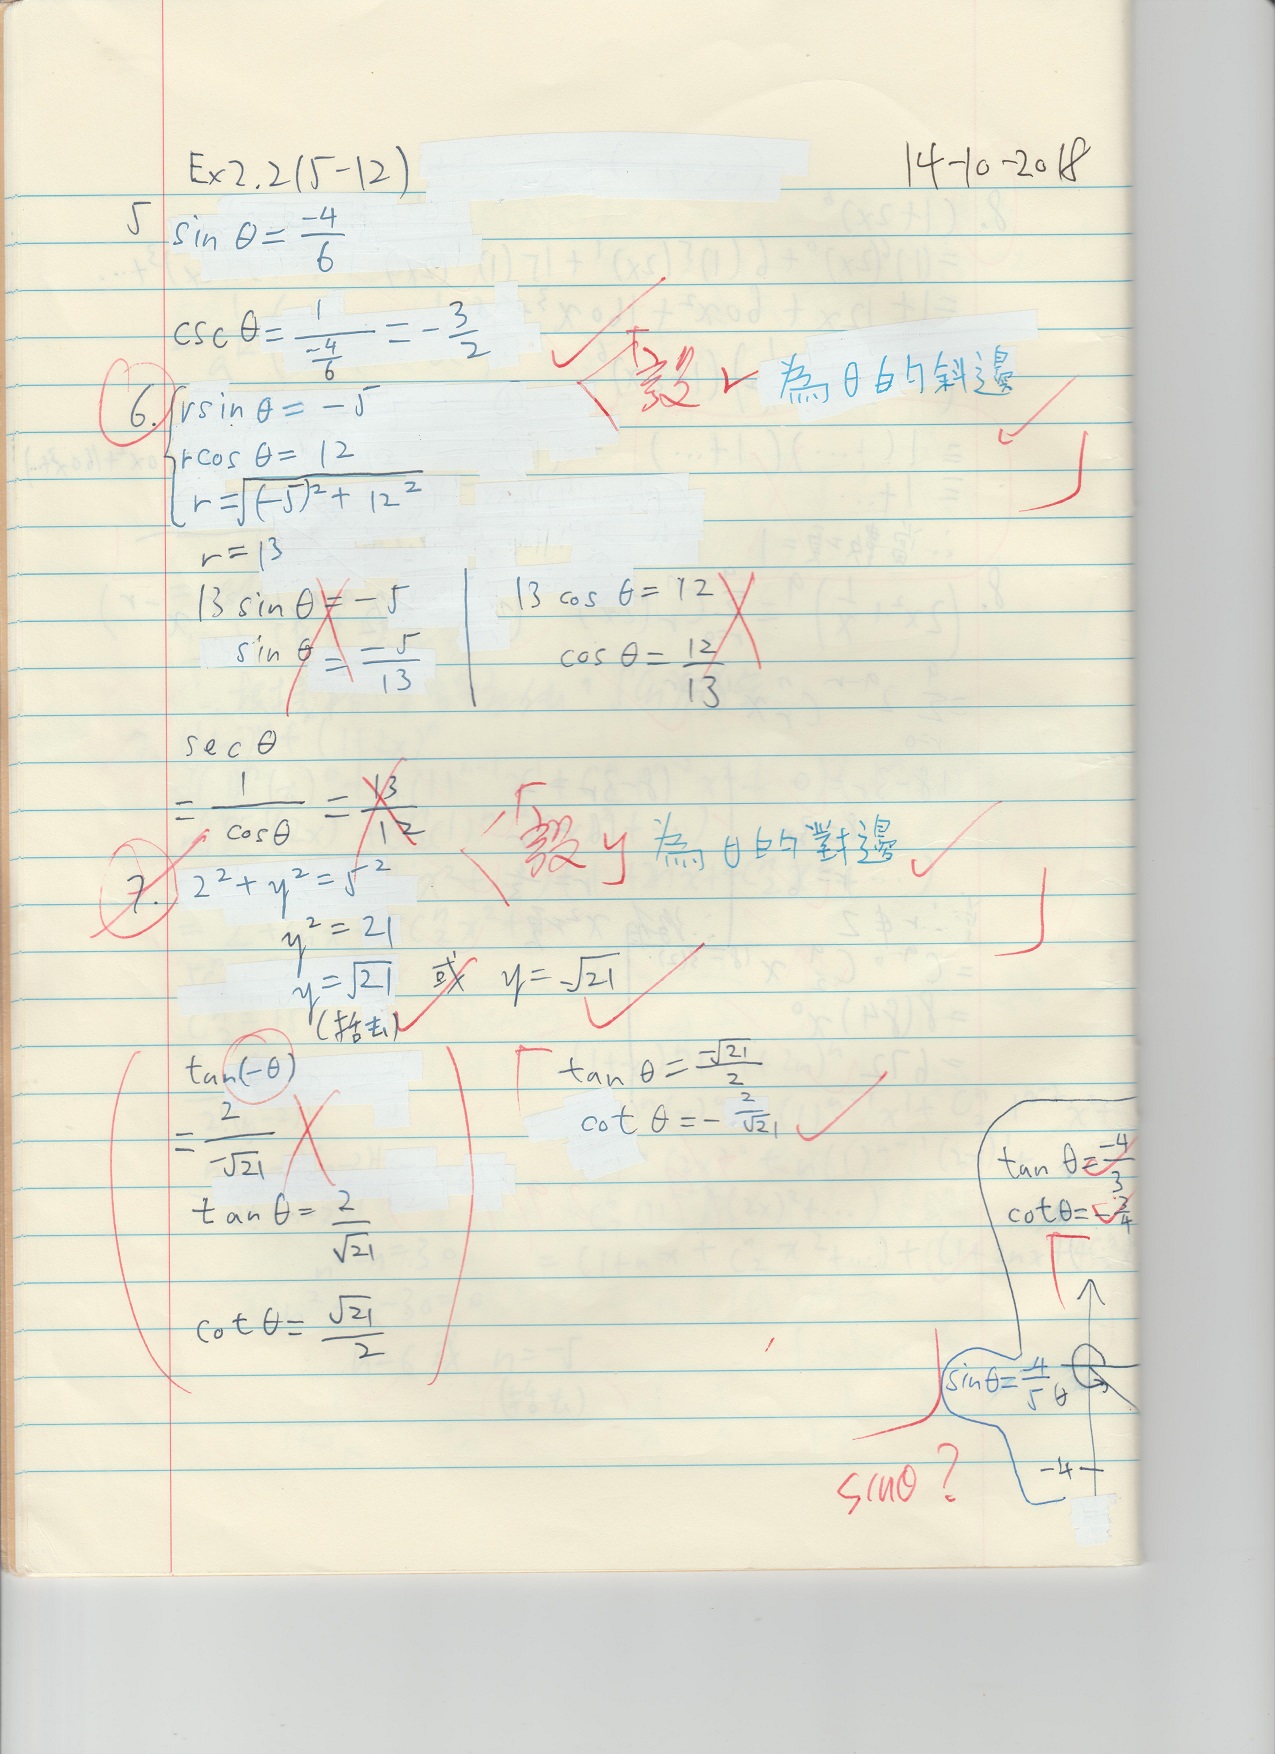 Ex2.2(5-12)
14-10-2018
5 sin θ = -4/6
csc θ = 1/(-4/6) = -3/2
「設 r 為 θ 的斜邊
6. r sin θ = -5
r cos θ = 12
r = √((-5)² + 12²)
r = 13
13 sin θ = -5
sin θ = -5/13
13 cos θ = 12
cos θ = 12/13
sec θ
= 1/cosθ = 13/12
「設 y 為 θ 的對邊
7. 2² + y² = 5²
y² = 21
y = √21 或 y = -√21
(括去)
tan(-θ)
= 2/-√21
tan θ = 2/√21
cot θ = √21/2
tan θ = -√21/2
cot θ = -2/√21
tan θ = -4/3
cot θ = -3/4
sinθ = -4/5 θ
-4
sinθ?